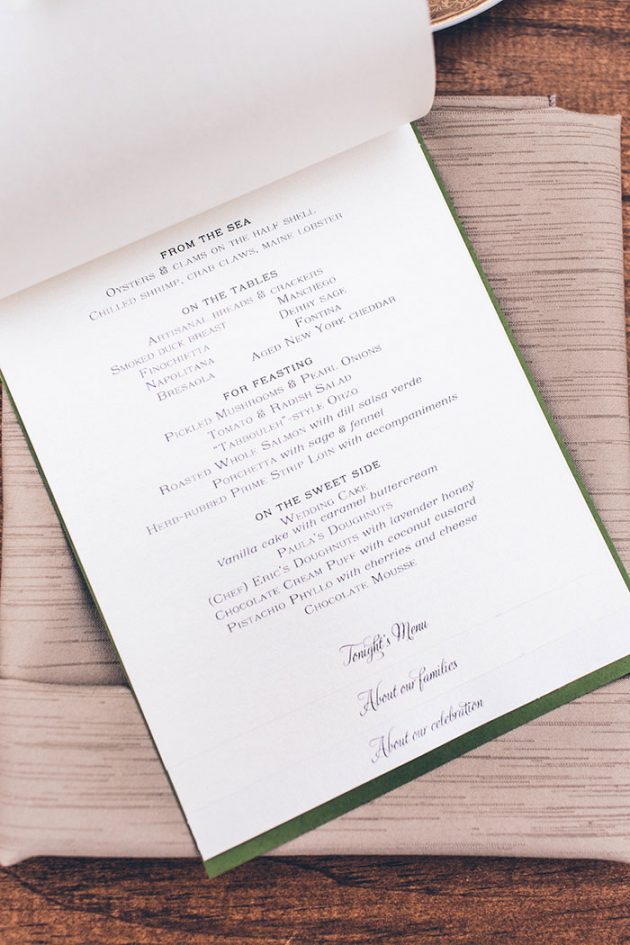 FROM THE SEA
OYSTERS & CLAMS ON THE HALF SHELL
CHILLED SHRIMP, CRAB CLAWS, MAINE LOBSTER
ON THE TABLES
ARTISANAL BREADS & CRACKERS
SMOKED DUCK BREAST MANCHEGO
FINOCHIETTA DERBY SAGE
NAPOLITANA FONTINA
BRESAOLA AGED NEW YORK CHEDDAR
FOR FEASTING
PICKLED MUSHROOMS & PEARL ONIONS
TOMATO & RADISH SALAD
"TABBOULEH"-STYLE ORZO
ROASTED WHOLE SALMON with dill salsa verde
PORCHETTA with sage & fennel
HERB-RUBBED PRIME STRIP LOIN with accompaniments
ON THE SWEET SIDE
WEDDING CAKE
vanilla cake with caramel buttercream
PAULA'S DOUGHNUTS
(CHEF) ERIC'S DOUGHNUTS with lavender honey
CHOCOLATE CREAM PUFF with coconut custard
PISTACHIO PHYLLO with cherries and cheese
CHOCOLATE MOUSSE
Tonight's Menu
About our families
About our celebration